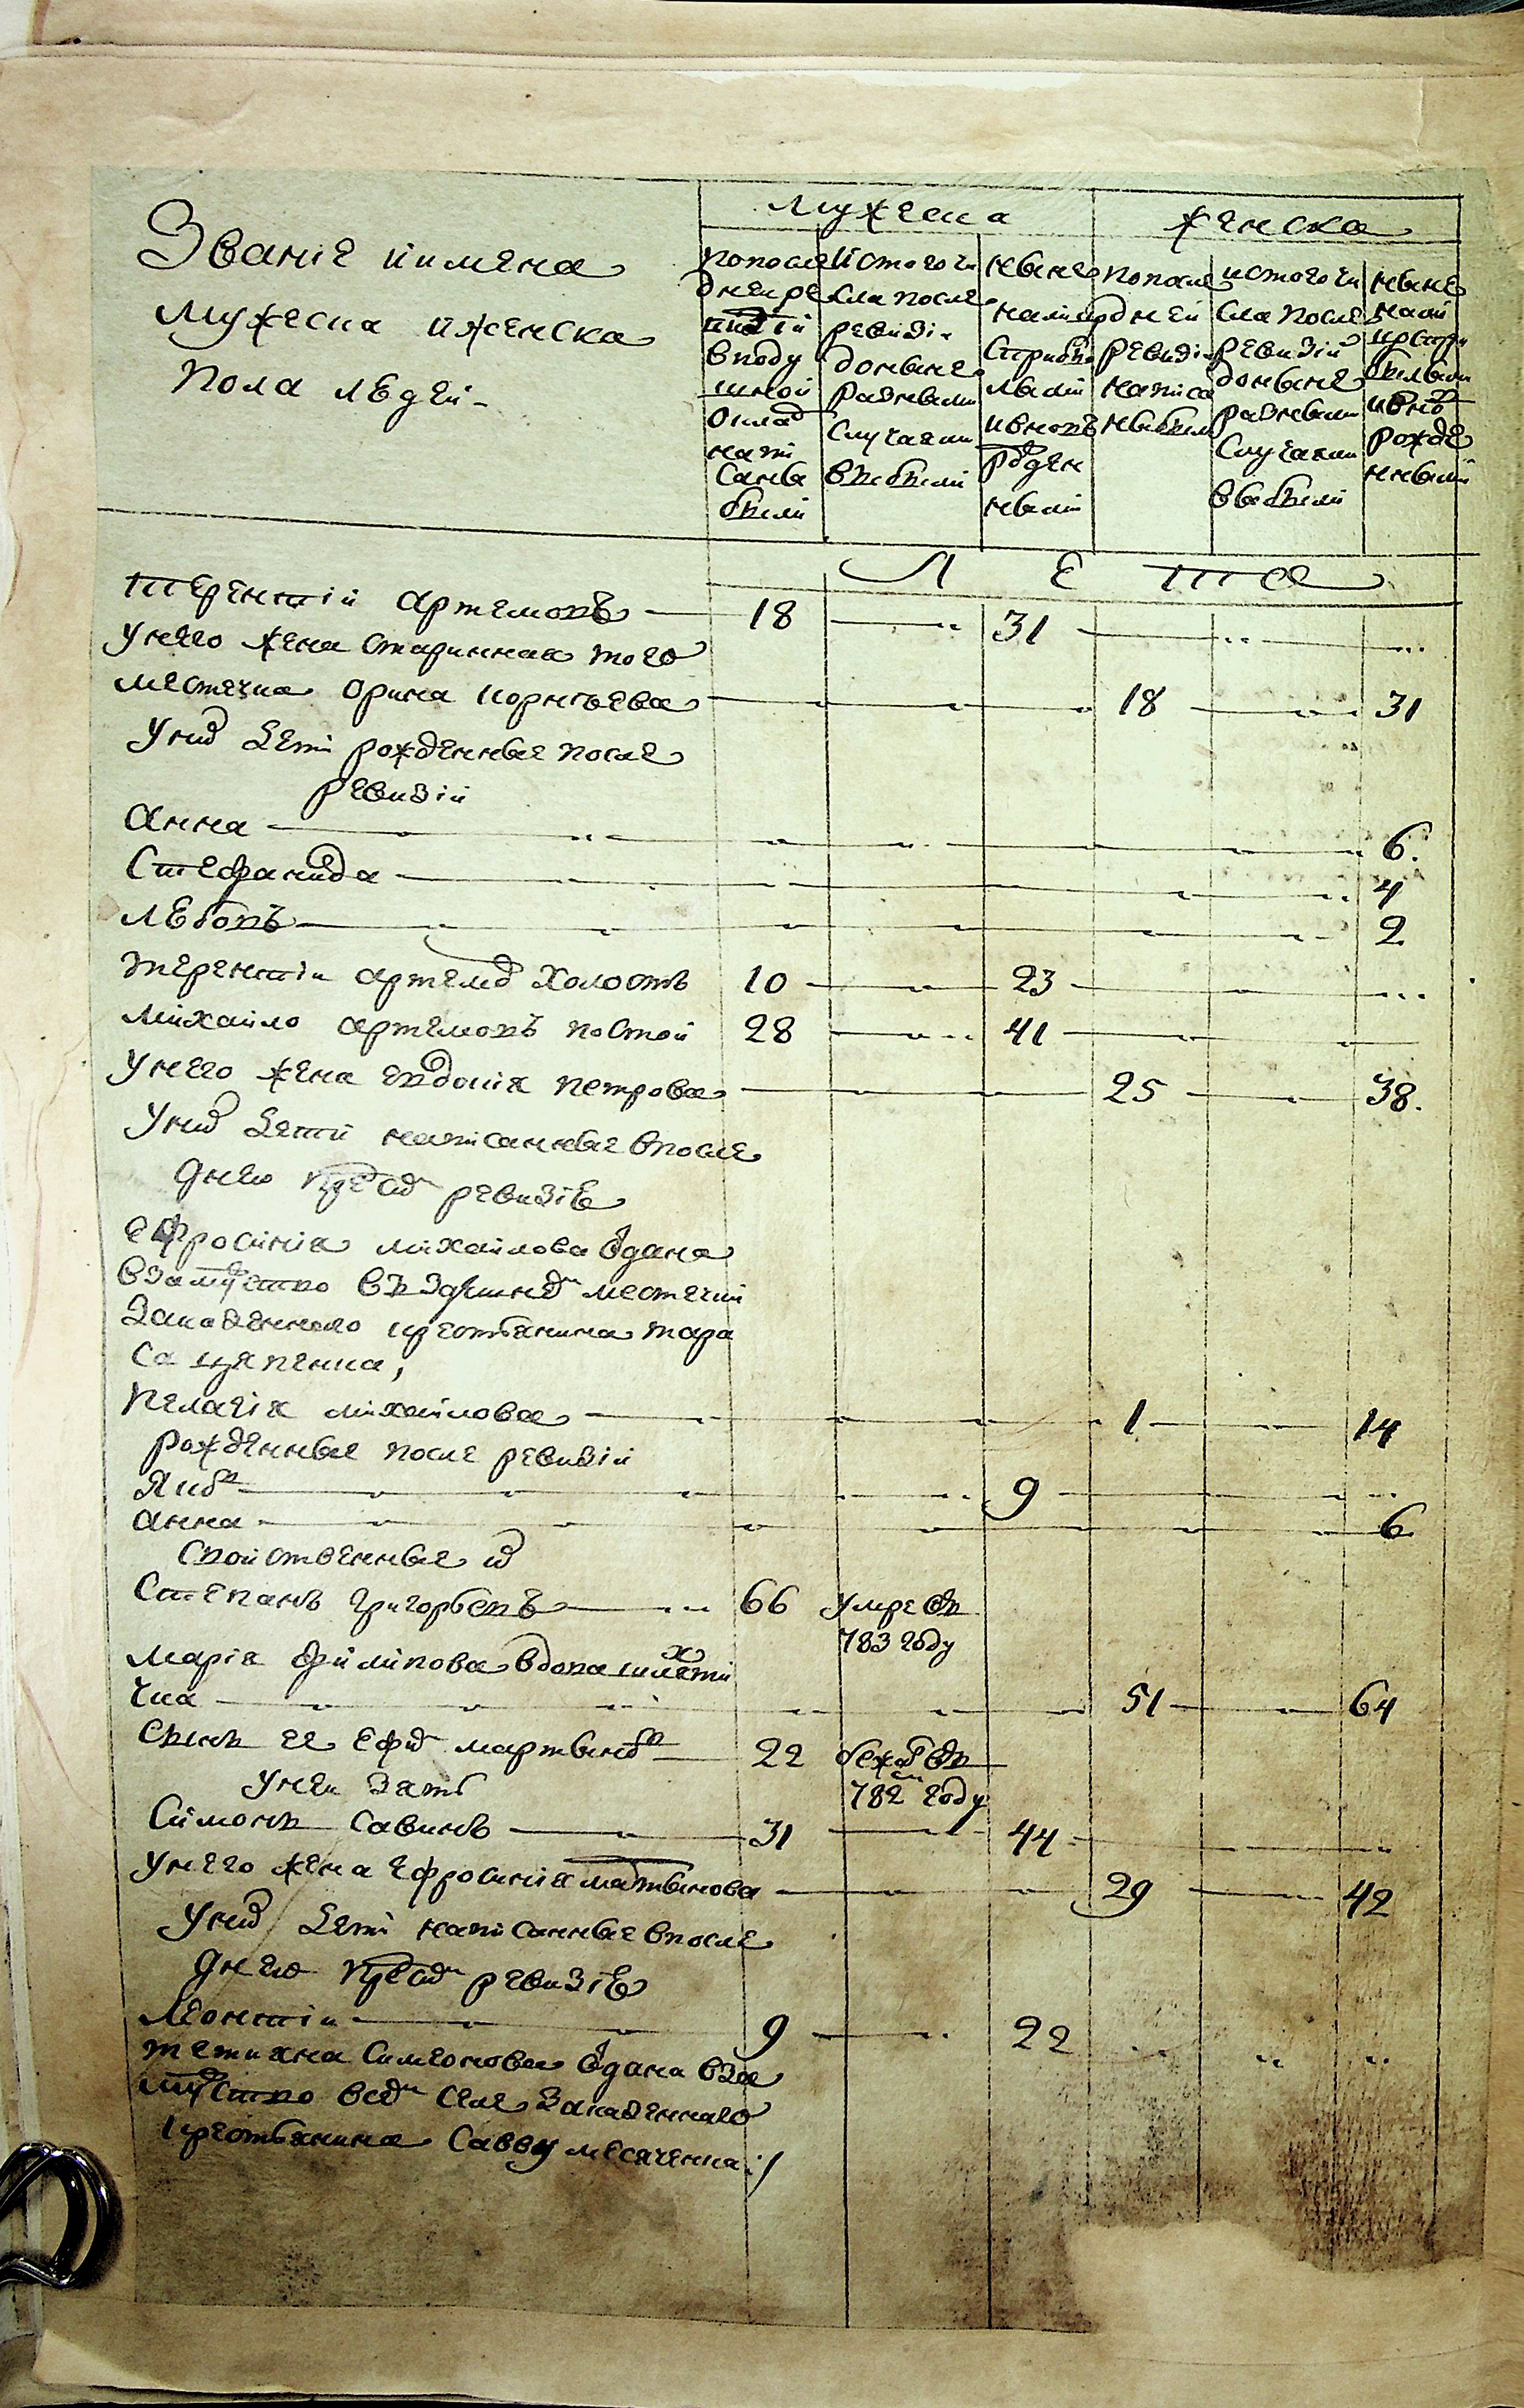 Званіе иимена
мужеска иженска
пола людей
мужеска
женска
попосле
дней ре
визіи
вподу
шной
оклад
напи
саны
были
истогочи
сла после
ревизіи
доныне
разными
случаями
выбыли
ныне
налицо
сприбы
лыми
ивновь
рожден
ными
попосле
дней
ревизіи
написа
ны были
истогочи
сла после
ревизіи
доныне
разными
случаями
выбыли
ныне
нали
цо спри
былыми
ивновь
рожде
нными
Л Е Т А
терентій артемовъ 18 31
унего жена старинная того
местечка орина корнѣева 18 31
уних дети рожденные после
ревизіи
анна 6.
Стефанида 4
любовь 2
терентій артемов холостъ 10 23
михайло артемовъ постой 28 41
унего жена евдокія петрова 25 38.
уних дети написанные впосле
днею пред сим ревизіею
ефросинія михайлова отдана
взамужство в местечки
казенного крестьянина тара
са цепенка,
пелагія михайлова 1 14
рожденные после ревизіи
Яков 9
анна 6
свойственные их
Степанъ григорьевъ 66 умре въ
783 году
марія филипова вдова шляхти
чка 51 64
сынъ ее ефим мартынов 22 бежал въ
782м году
унеи зять
Симонъ савинъ 31 44
унего жена ефросинія мартынова 29 42
уних дети написанные впосле
днею пред сим ревизіею
леонтій 9 22
тетияна симеонова отдана вза
мужство селе казенного
крестьянина савву месяченка :/